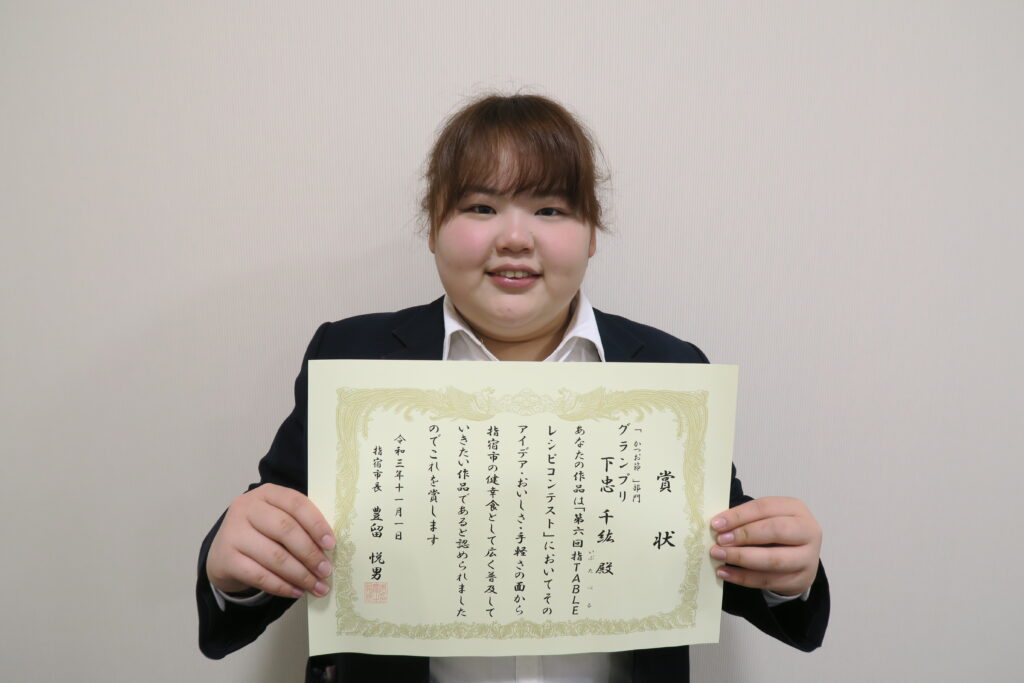 賞状
「かつお節」部門
グランプリ
下忠 千紘 殿
あなたの作品は「第六回指TABLE
いぶたぼる
レシピコンテスト」においてその
アイデア・おいしさ・手軽さの面から
指宿市の健幸食として広く普及して
いきたい作品であると認められました
のでこれを賞します
令和三年十一月一日
指宿市長 豊留 悦男